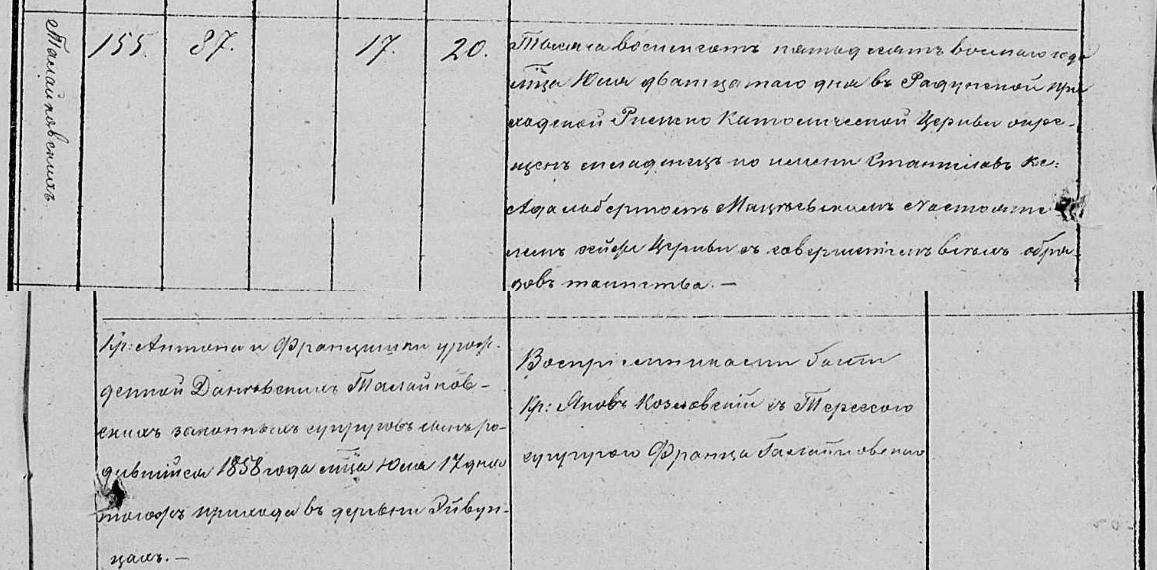 Талайковскихъ
155. 87. 17. 20.
Тысяча восемсотъ пятдесятъ восмаго года
мца Юля дватцатаго дня въ Радунской при
ходской Римско Католической Церкви окре-
щенъ младенецъ по имени Станиславъ Кс:
Адальбертомъ Мацѣевскимъ Настояте
лемъ сейже Церкви съ совершеніемъ всѣхъ обря-
довъ таинства. —
Кр: Антона и Францишки урож-
денной Данковскихъ Талайков-
скихъ законныхъ супруговъ сынъ ро-
дившійся 1858 года мца Юля 17 дня
тогожъ прихода въ деревни
цахъ. —
Воспріемниками были
Кр: Яковъ Козловскій съ Терессою
супругою Франца Талайковскаго